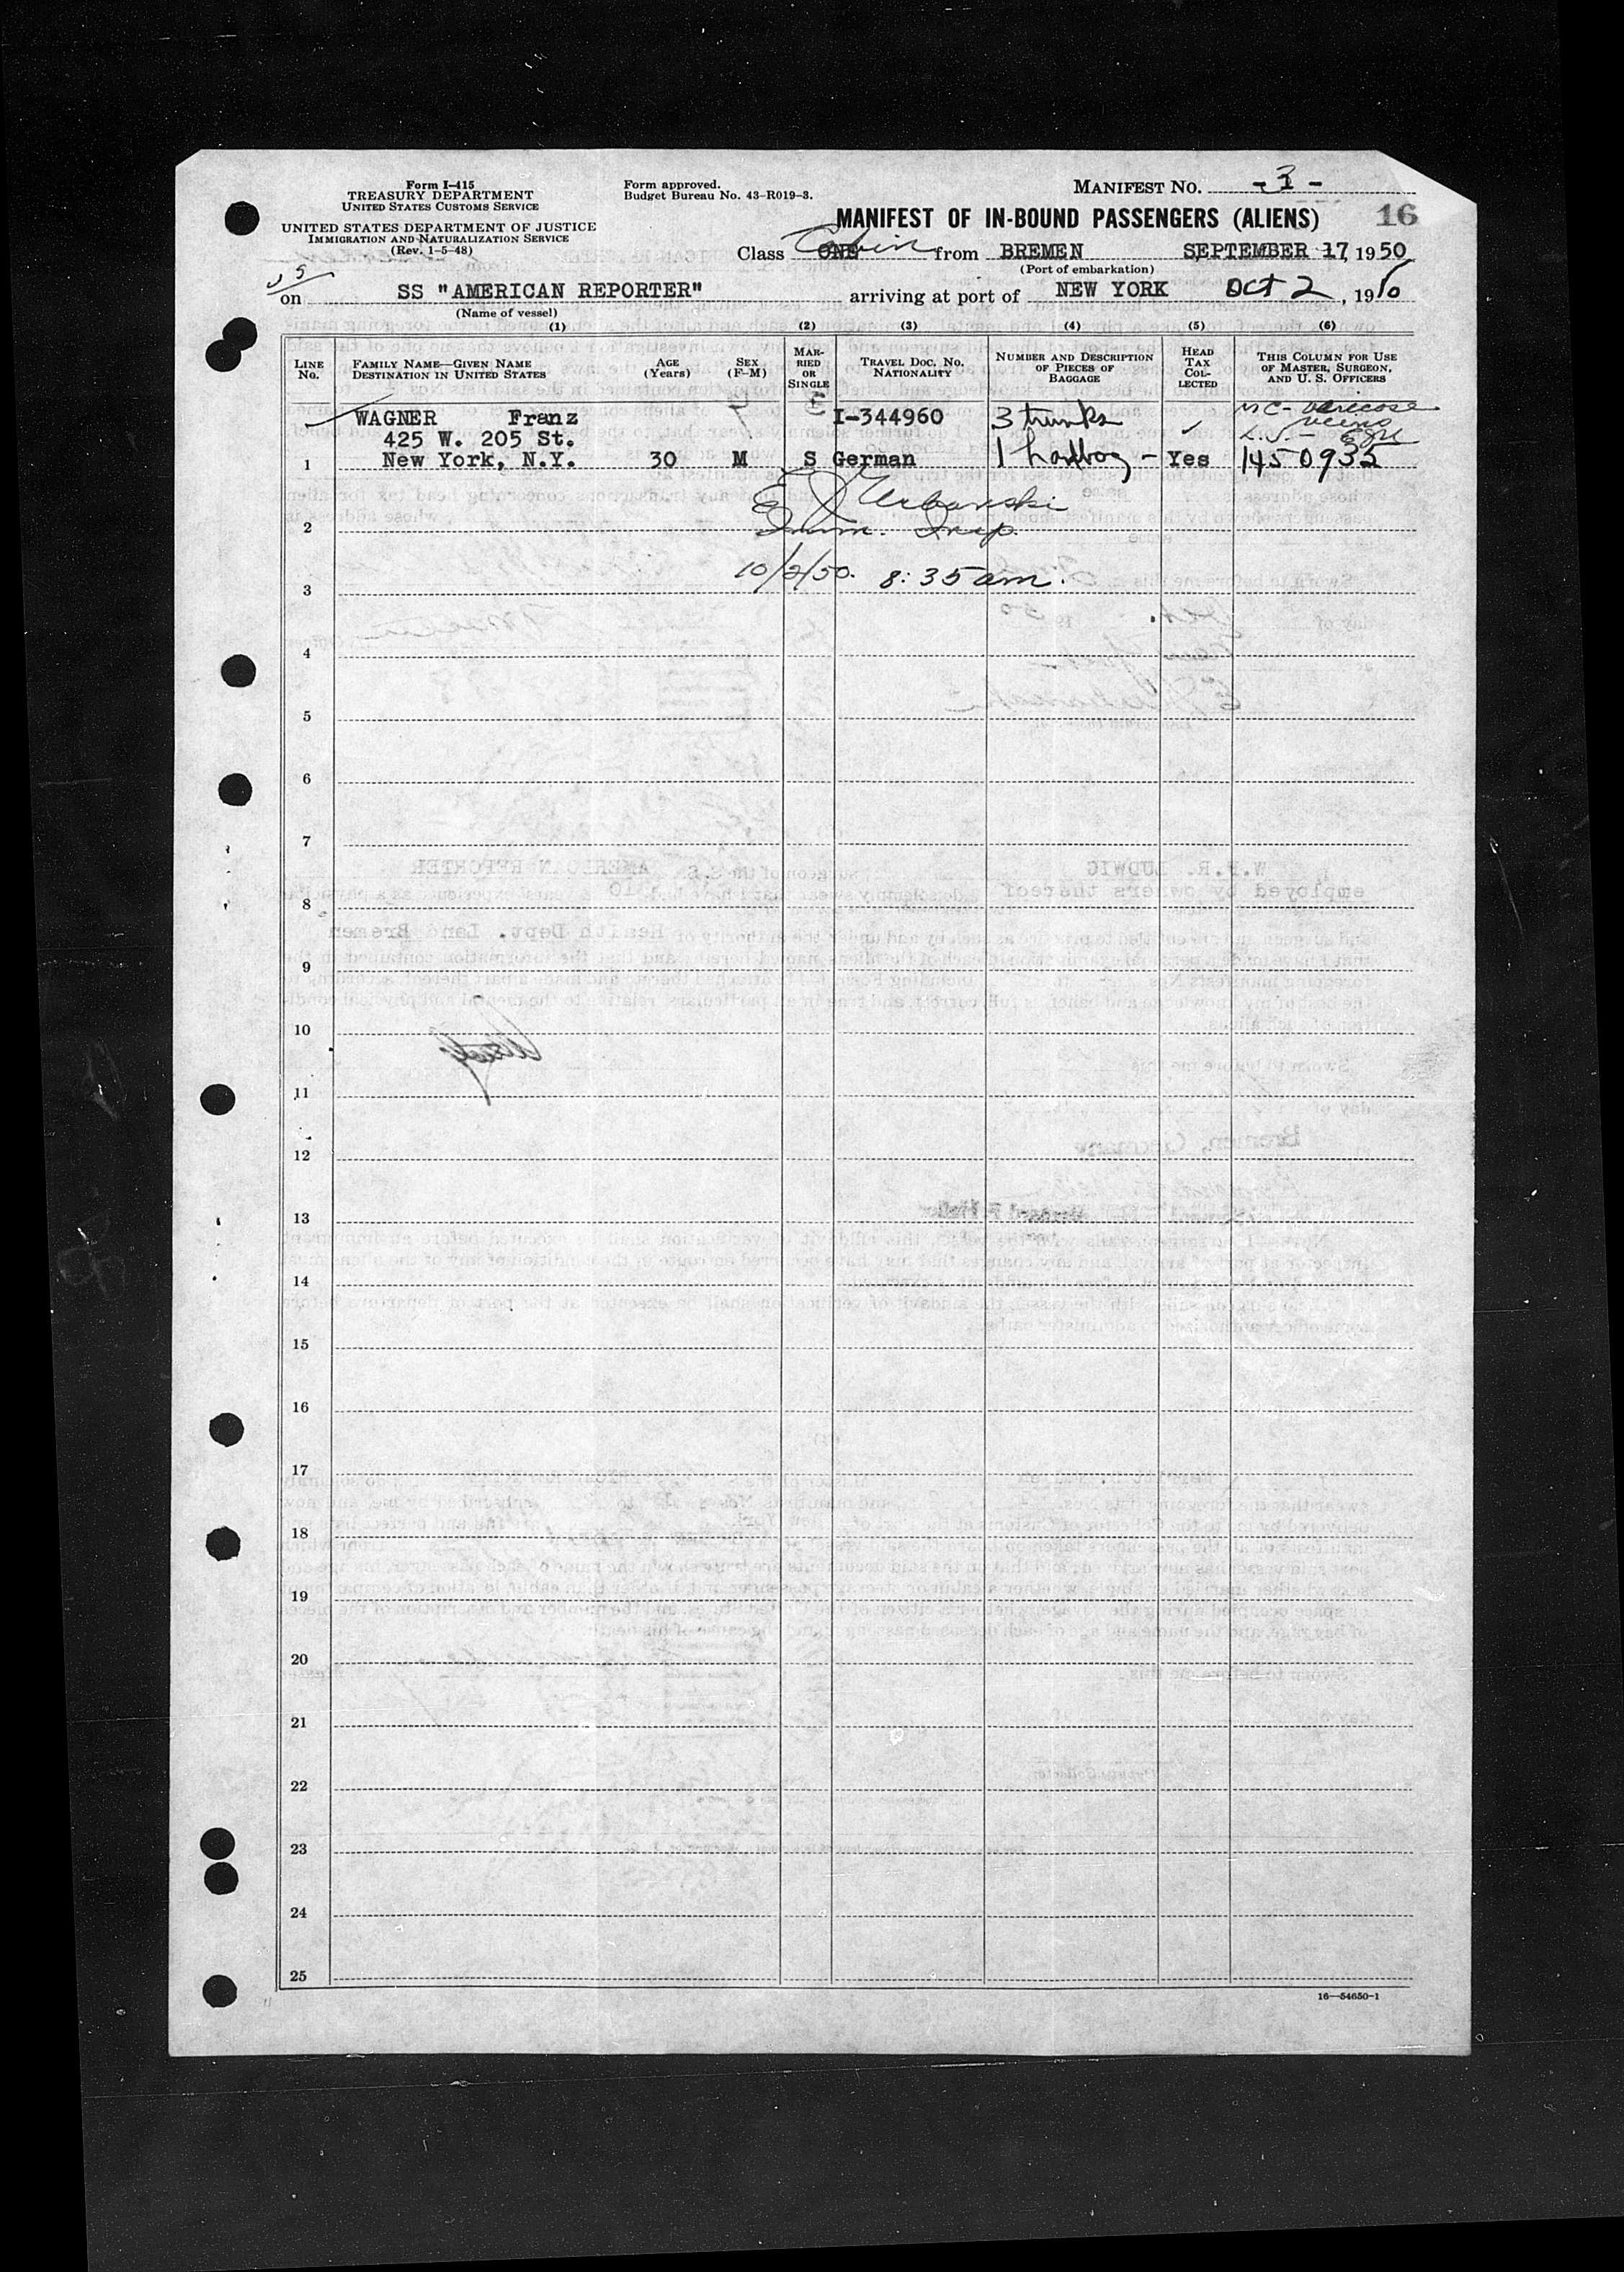 Form I-415
TREASURY DEPARTMENT
UNITED STATES CUSTOMS SERVICE
UNITED STATES DEPARTMENT OF JUSTICE
IMMIGRATION AND NATURALIZATION SERVICE
(Rev. 1-5-48)
Form approved.
Budget Bureau No. 43-R019-3.
MANIFEST NO. -1-
MANIFEST OF IN-BOUND PASSENGERS (ALIENS) 16
Class ONE Cabin from BREMEN SEPTEMBER 17, 1950
(Port of embarkation)
on SS "AMERICAN REPORTER" arriving at port of NEW YORK Oct 2, 1950
(Name of vessel)
(1) (2) (3) (4) (5) (6)
LINE No. FAMILY NAME—GIVEN NAME DESTINATION IN UNITED STATES AGE (Years) SEX (F-M) MARRIED OR SINGLE TRAVEL DOC. NO. NATIONALITY NUMBER AND DESCRIPTION OF PIECES OF BAGGAGE HEAD TAX COLLECTED THIS COLUMN FOR USE OF MASTER, SURGEON, AND U. S. OFFICERS
WAGNER Franz I-344960 3 trunks MC- Varicose veins
425 W. 205 St.
1 New York, N.Y. 30 M S German 1 handbag - Yes 1450935
E J Urbanski
2 Imm. Insp.
10/2/50. 8:35 am.
3
4
5
6
7
8
9
10
11
12
13
14
15
16
17
18
19
20
21
22
23
24
25
16—54650-1